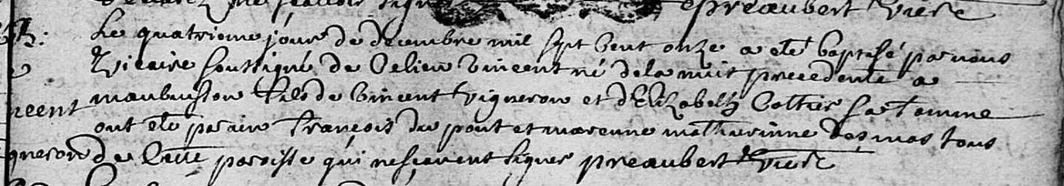 preaubert vicre
B. Le quatrieme jour de decembre mil sept cent onze a eté baptisé par nous
Vicaire soussigné de ce lieu vincent né de la nuit precedente a
ncent maubuisson fils de vincent vigneron et d'Elizabeth Cottier sa famme
ont eté parain françois du pont et marenne mathurinne des mas tous
gneron de cette paroisse qui ne scavent signer preaubert vicre